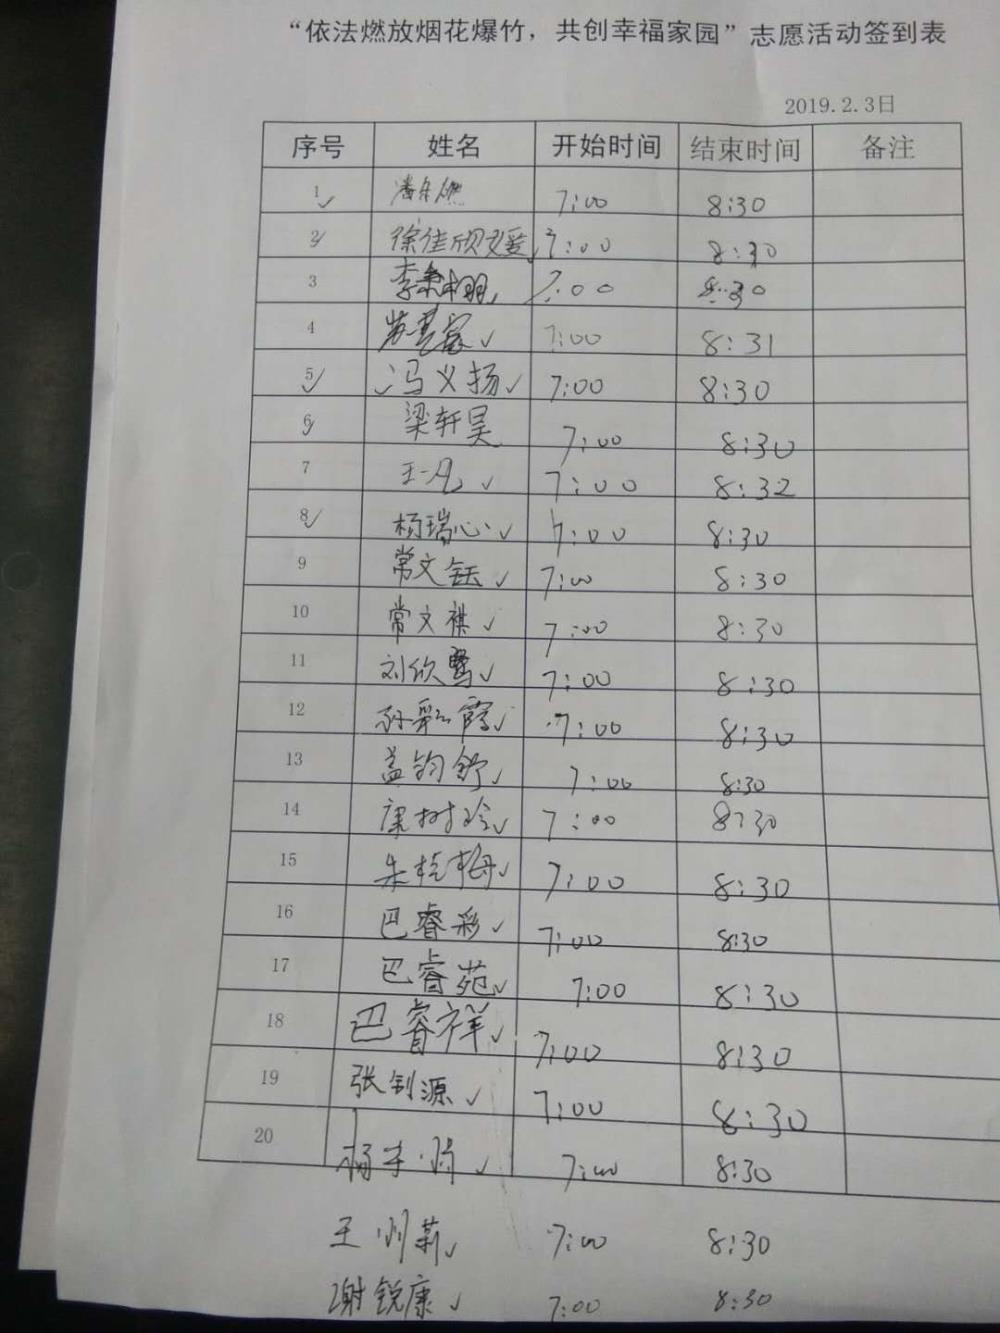 “依法燃放烟花爆竹，共创幸福家园”志愿活动签到表
2019.2.3日
序号 姓名 开始时间 结束时间 备注
1 7:00 8:30
2 徐佳欣 7:00 8:30
3 李 7:00 8:30
4 7:00 8:31
5 冯义扬 7:00 8:30
6 梁轩昊 7:00 8:30
7 王一凡 7:00 8:32
8 杨瑞心 7:00 8:30
9 常文钰 7:00 8:30
10 常文祺 7:00 8:30
11 刘欣鹭 7:00 8:30
12 孙彩霞 7:00 8:30
13 孟钧舒 7:00 8:30
14 康树玲 7:00 8:30
15 朱桂梅 7:00 8:30
16 巴睿彩 7:00 8:30
17 巴睿苑 7:00 8:30
18 巴睿祥 7:00 8:30
19 张钊源 7:00 8:30
20 杨 7:00 8:30
王 莉 7:00 8:30
谢锐康 7:00 8:30